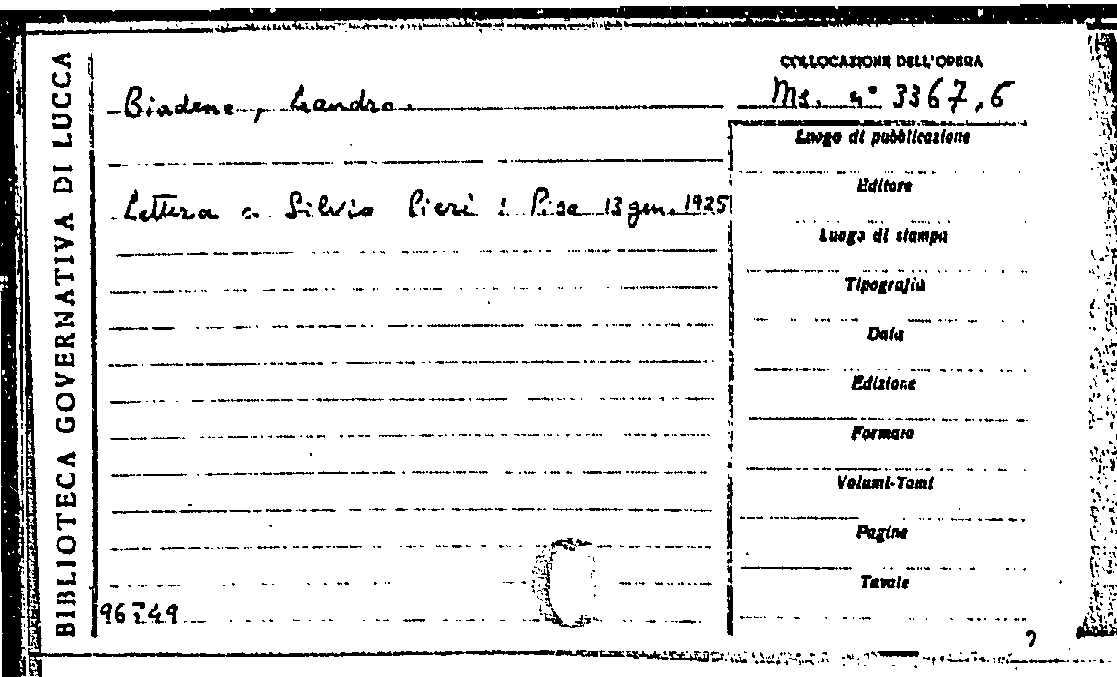 BIBLIOTECA GOVERNATIVA DI LUCCA
Biadene, Leandro.
Lettera a Silvio Pieri : Pisa 13 gen. 1925
COLLOCAZIONE DELL'OPERA
Ms. n° 3367,6
Luogo di pubblicazione
Editore
Luogo di stampa
Tipografia
Data
Edizione
Formato
Volumi-Tomi
Pagine
Tavole